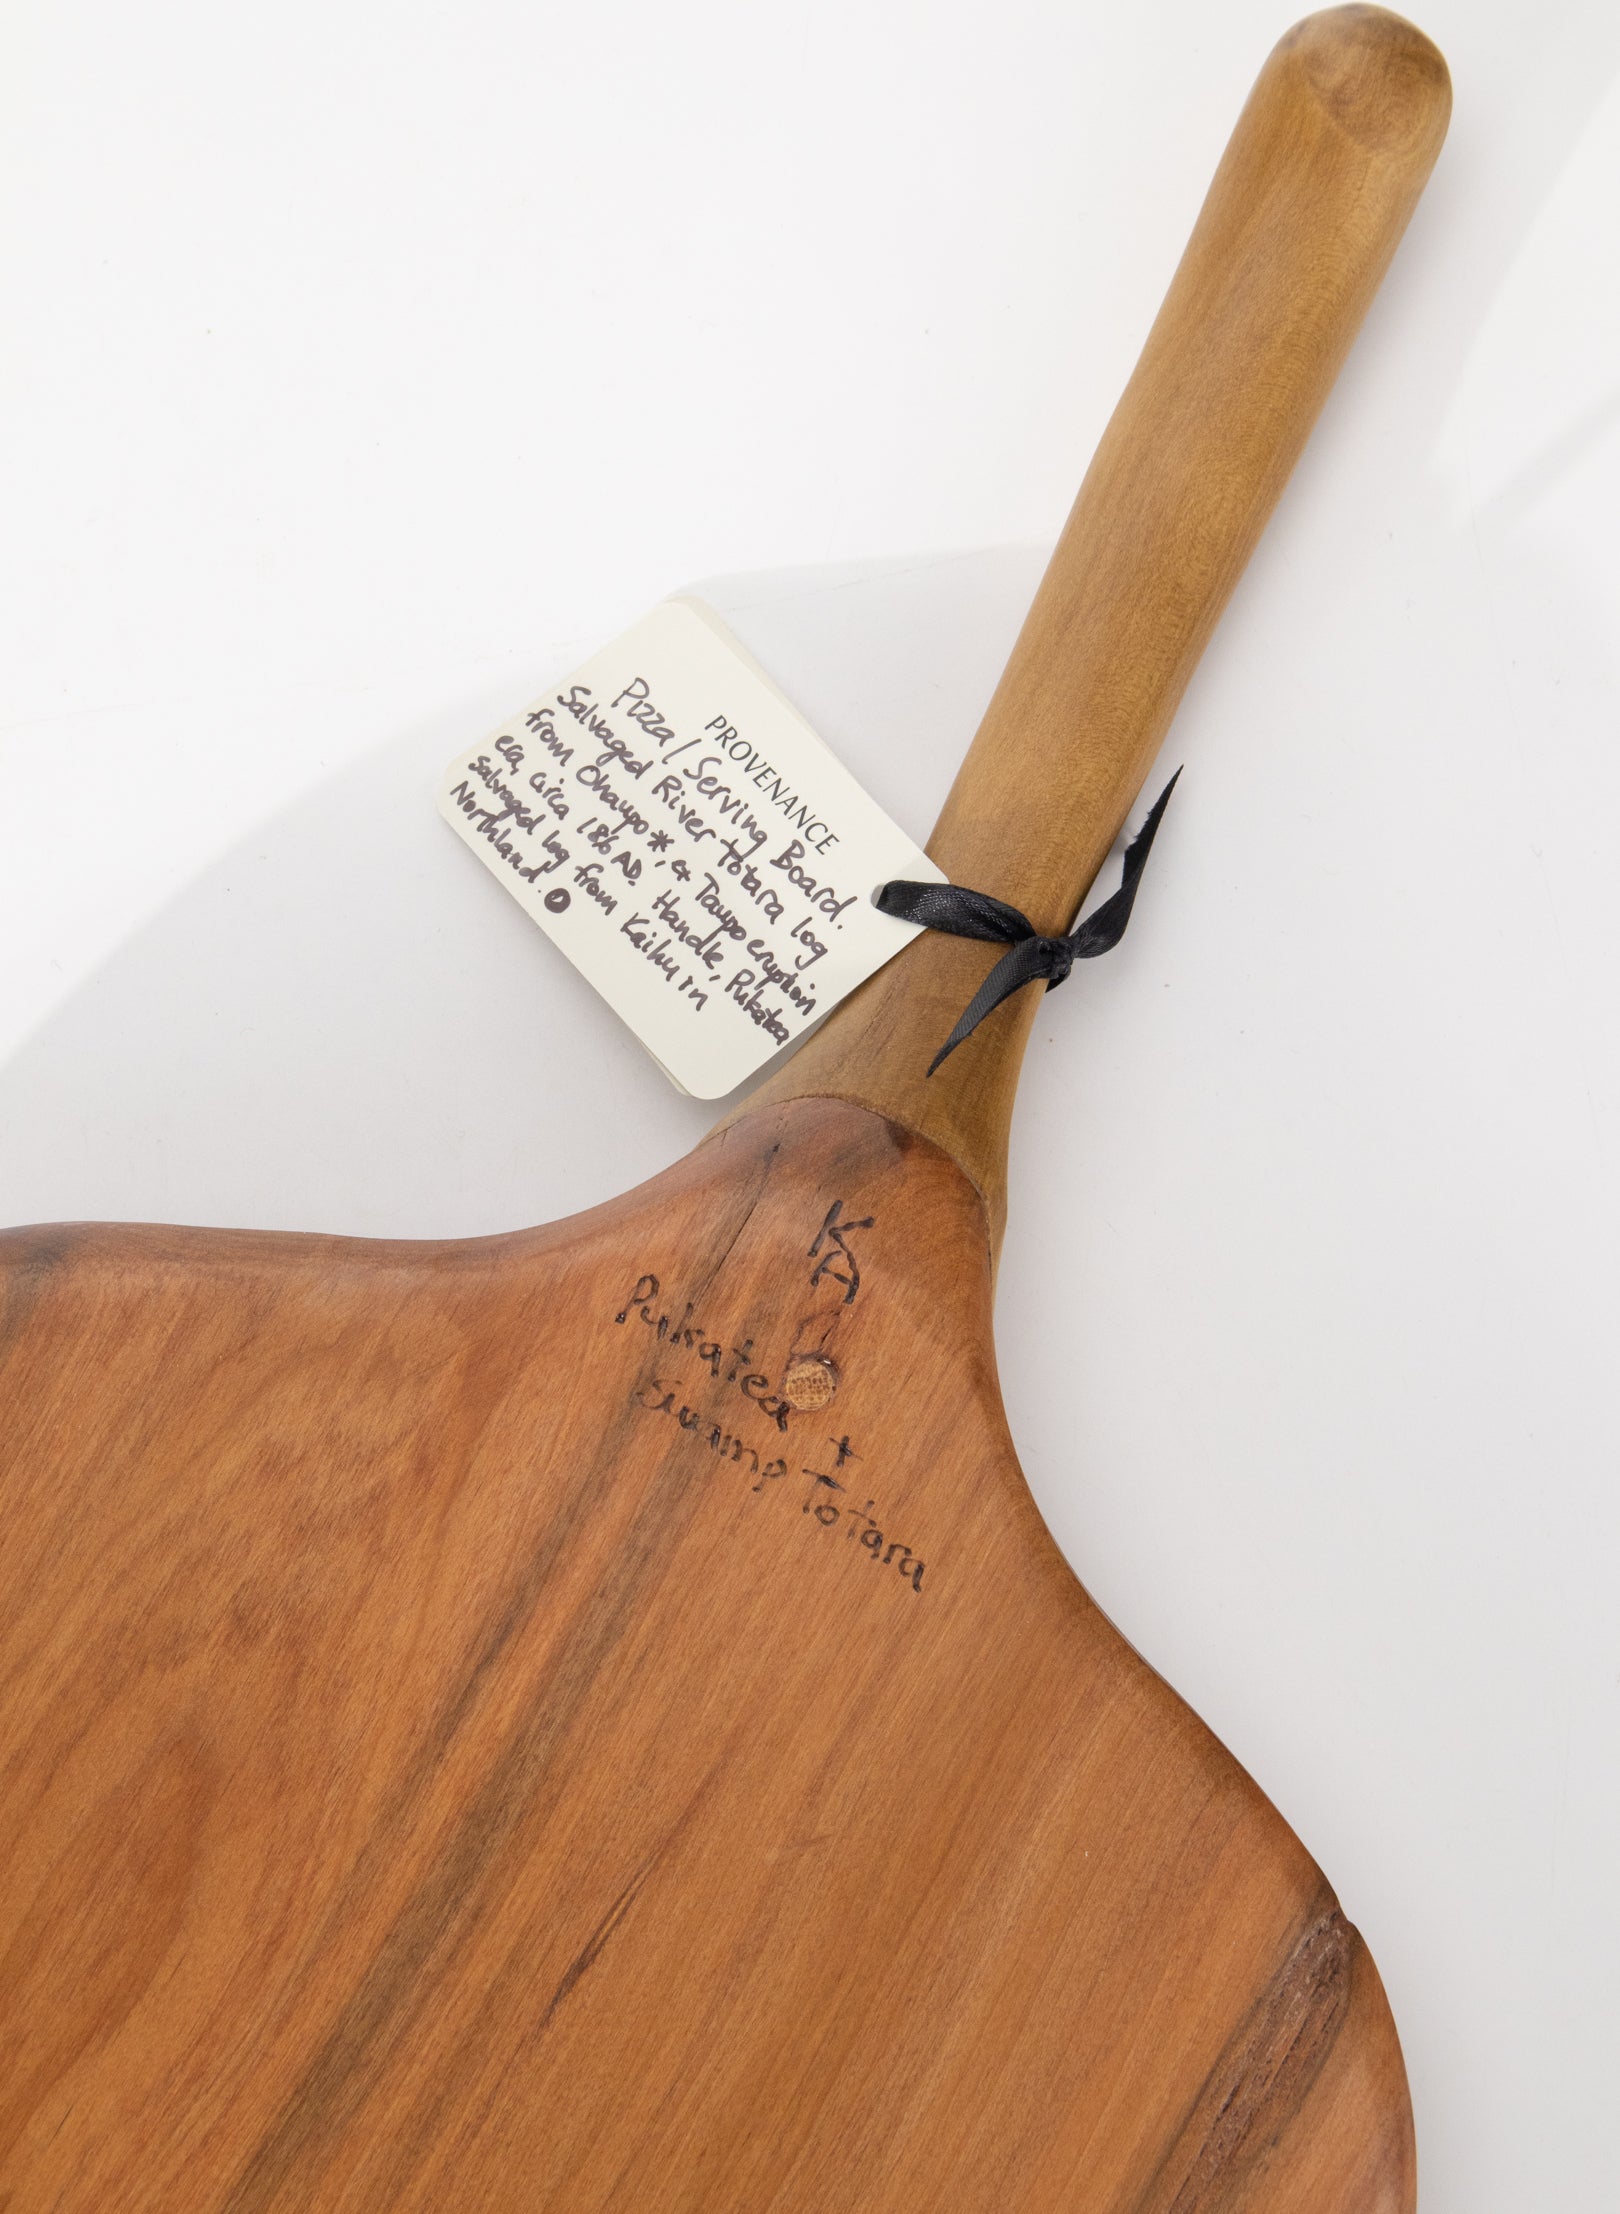 PROVENANCE
Pizza / Serving Board.
Salvaged River Totara log
from Ohaupo *, & Taupo eruption
era, circa 186 AD. Handle, Pukatea
salvaged log from Kaihu in
Northland.
KA
Pukatea +
Swamp Totara